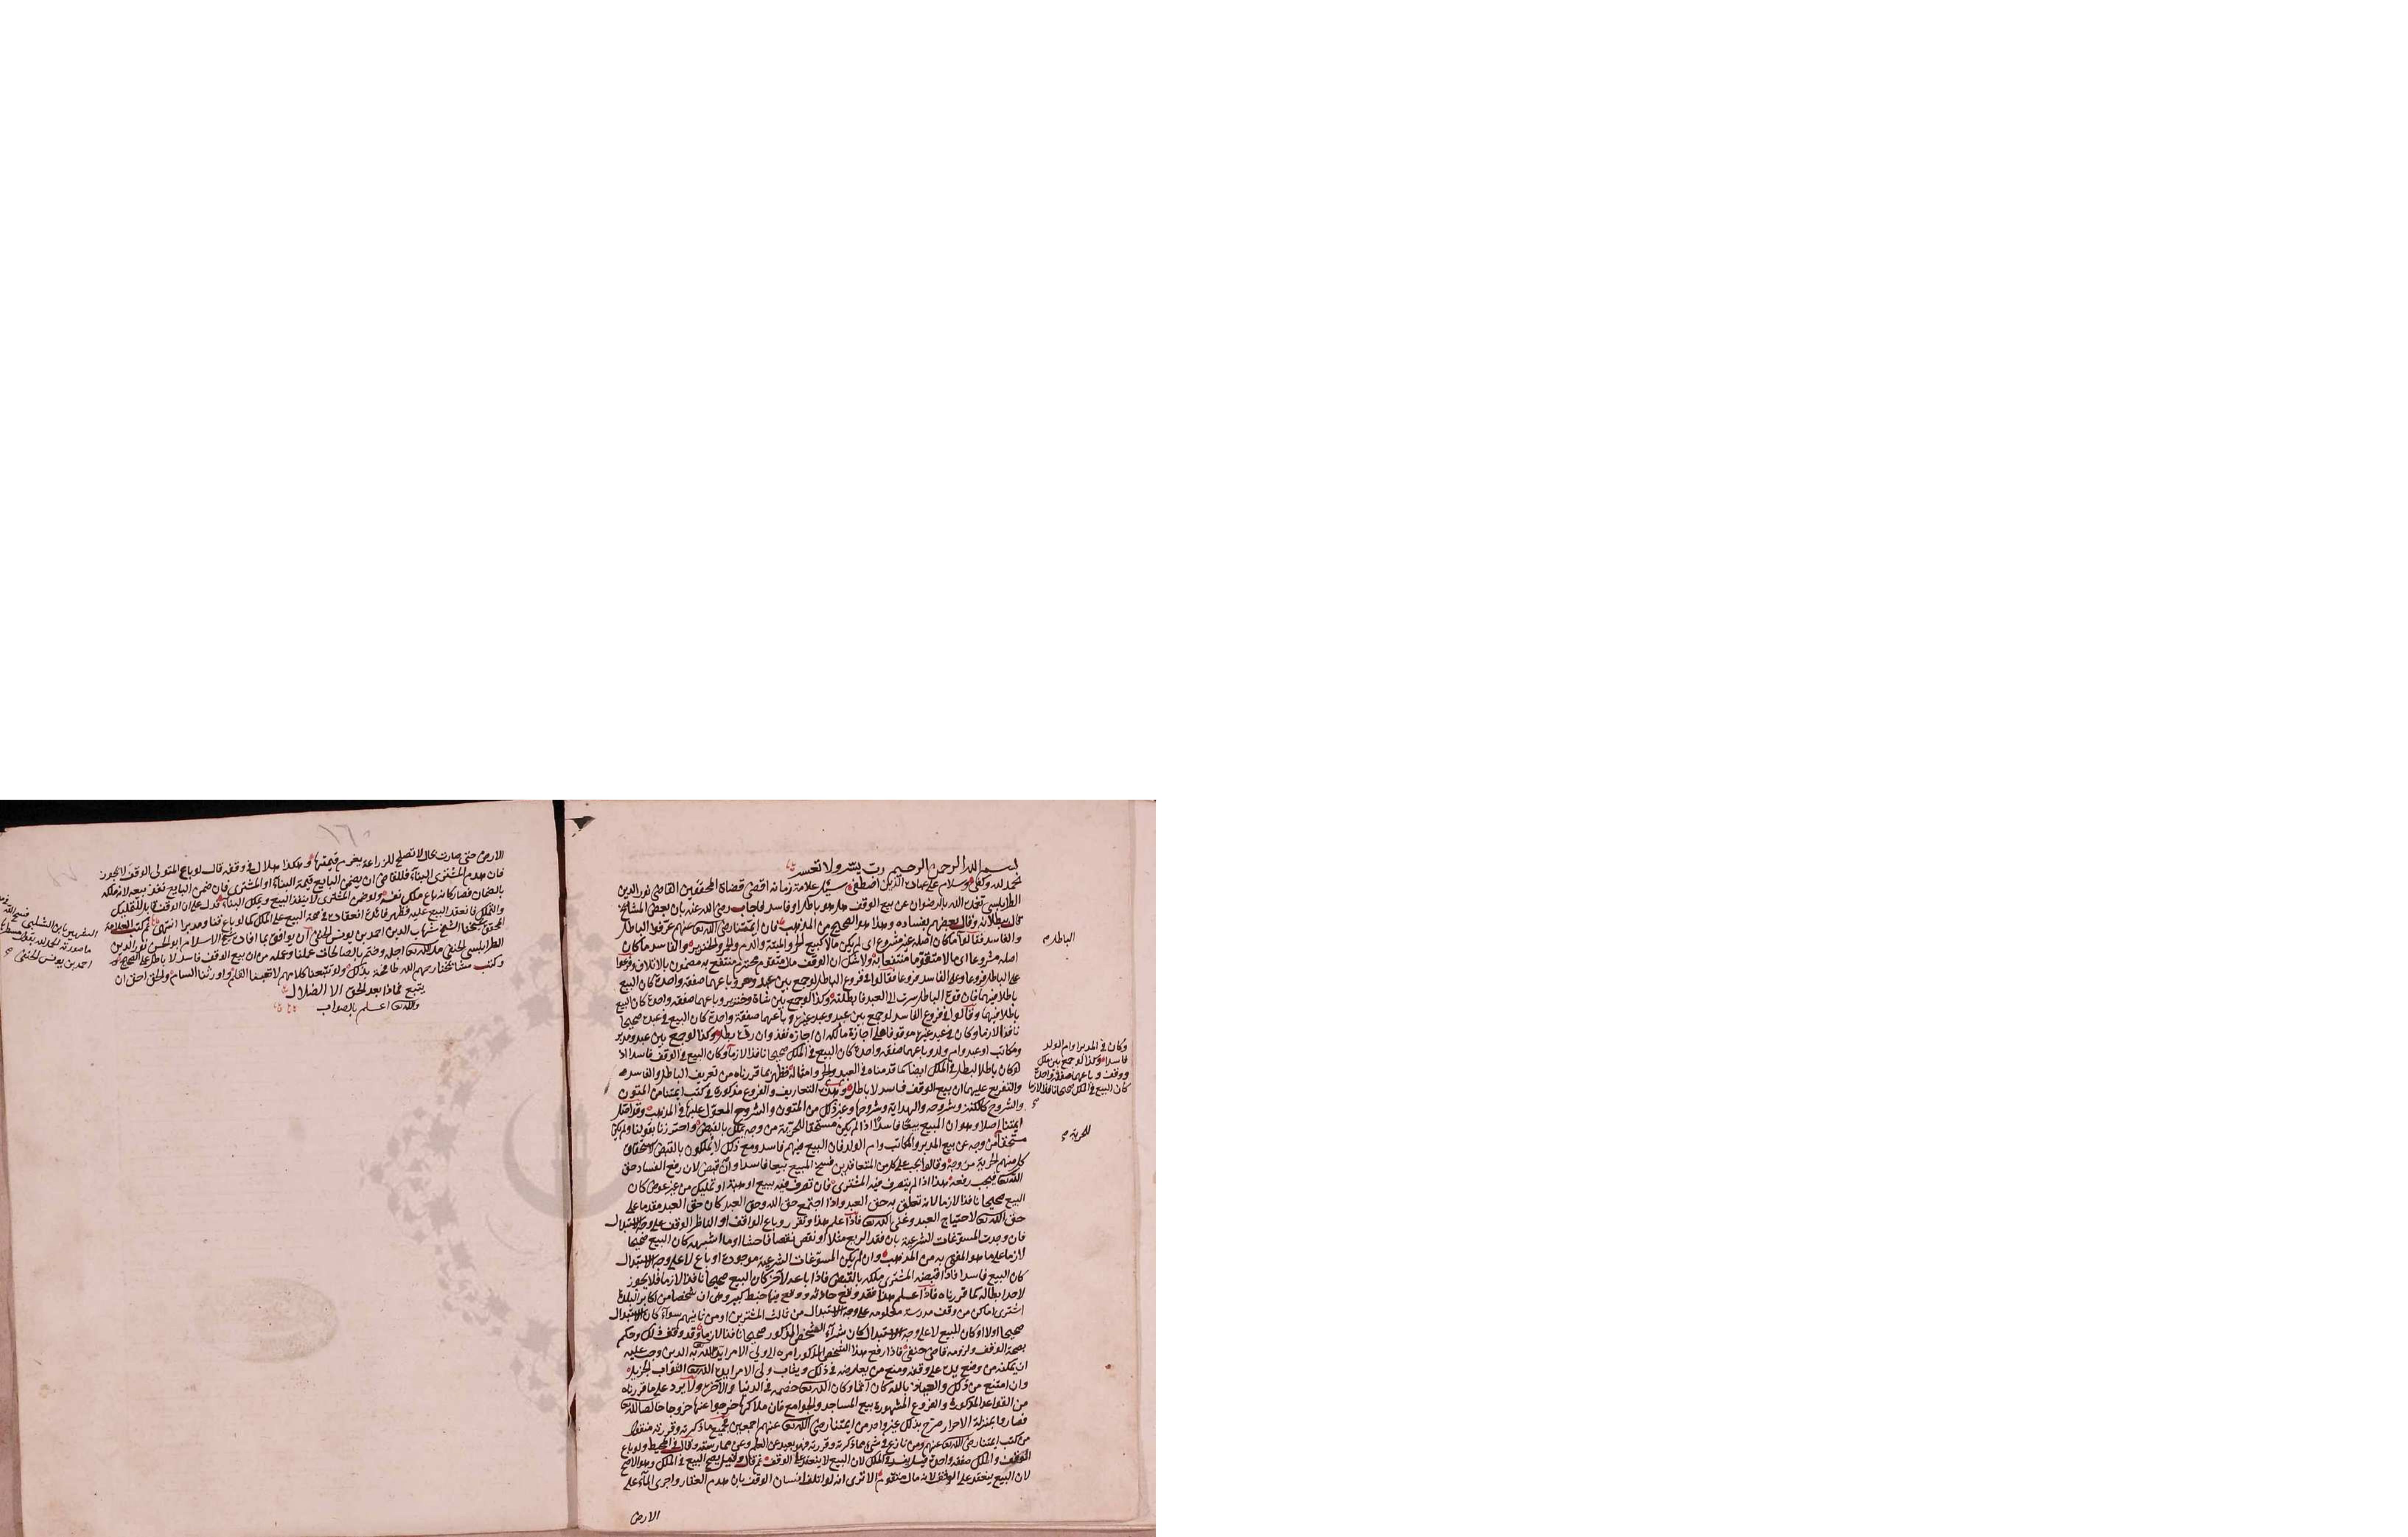 بسم الله الرحمن الرحيم رب يسر ولا تعسر
الحمد لله وكفى وسلام على عباده الذين اصطفى سئل علامة زمانه اقضى قضاة المحققين القاضي نور الدين
الطرابلسي تغمده الله بالرضوان عن بيع الوقف هل هو باطل او فاسد فاجاب رضي الله عنه بان بعض المشائخ
قال ببطلانه وقال بعضهم بفساده وهذا هو الصحيح من المذهب فان ايمتنا رضي الله تعالى عنهم عرفوا الباطل
والفاسد فقالوا ما كان اصله غير مشروع اي لم يكن مالا كبيع الحر والميتة والدم والخمر والخنزير والفاسد ما كان
اصله مشروعا اي مالا متقوما منتفعا به ولا شك ان الوقف مال متقوم محترم منتفع به مضمون بالاتلاف وفرعوا
على الباطل فروعا وعلى الفاسد فروعا فقالوا في فروع الباطل لو جمع بين عبد وحر وباعهما صفقة واحدة كان البيع
باطلا فيهما فان قوة الباطل سرت الى العبد فابطلته وكذا لو جمع بين شاة وخنزير وباعهما صفقة واحدة كان البيع
باطلا فيهما وقالوا في فروع الفاسد لو جمع بين عبد وعبد غيره وباعهما صفقة واحدة كان البيع في عبده صحيحا
نافذا لازما وكان في عبد غيره موقوفا على اجازة مالكه ان اجازه نفذ وان رده بطل وكذا لو جمع بين عبد ومدبر
ومكاتب او عبد وام ولد وباعهما صفقة واحدة كان البيع في الملك صحيحا نافذا لازما وكان البيع في الوقف فاسدا اذ
لو كان باطلا لبطل في الملك ايضا كما قدمناه في العبد والحر وامثاله فظهر بما قررناه من تعريف الباطل والفاسد
والتفريع عليهما ان بيع الوقف فاسد لا باطل وهذه التعاريف والفروع مذكورة في كتب ايمتنا من المتون
والشروح كالكنز وشروحه والهداية وشروحها وغير ذلك من المتون والشروح المعول عليها في المذهب وقد اصل
ايمتنا اصلا وهو ان المبيع بيعا فاسدا اذا لم يكن مستحقا للحرية من وجه يملك بالقبض واحترزنا بقولنا ولم يكن
مستحقا من وجه عن بيع المدبر والمكاتب وام الولد فان البيع فيهم فاسد ومع ذلك لا يملكون بالقبض لاستحقاق
كل منهم الحرية من وجه وقالوا يجب على كل من المتعاقدين فسخ المبيع بيعا فاسدا وان قبض لان رفع الفساد حق
الله تعالى فيجب رفعه هذا اذا لم يتصرف فيه المشتري فان تصرف فيه ببيع او هبة او تمليك من غير عوض كان
البيع صحيحا نافذا لازما لانه تعلق به حق العبد واذا اجتمع حق الله وحق العبد كان حق العبد مقدما على
حق الله تعالى لاحتياج العبد وغنى الله تعالى فاذا علم هذا وتقرر وباع الواقف او الناظر الوقف على وجه الاستبدال
فان وجدت المسوغات الشرعية بان فقد الريع مثلا او نقص نقصا فاحشا او ما اشبهه كان البيع صحيحا
لازما على ما هو المفتى به من المذهب وان لم يكن المسوغات الشرعية موجودة او باع لا على وجه الاستبدال
كان البيع فاسدا فاذا اقبضه المشتري ملكه بالقبض فاذا باعه لاخر كان البيع صحيحا نافذا لازما فلا يجوز
لاحد ابطاله كما قررناه فاذا علم هذا فقد وقع حادثة ووقع فيها خبط كبير وهي ان شخصا من اكابر البلاد
اشترى اماكن من وقف مدرسة معلومة على وجه الاستبدال من ثالث المشترين او من ثانيهم سواء كان الاستبدال
صحيحا اولا او كان المبيع لا على وجه الاستبدال كان شراء الشخص المذكور صحيحا نافذا لازما وقد وقف ذلك وحكم
بصحة الوقف ولزومه قاضي حنفي فاذا رفع هذا الشخص المذكور امره الى ولي الامر ايد الله به الدين وجب عليه
ان يمكنه من وضع يده على وقفه ومنع من يعارضه في ذلك ويثاب ولي الامر ايده الله تعالى الثواب الجزيل
وان امتنع من ذلك والعياذ بالله كان آثما وكان الله تعالى خصمه في الدنيا والآخرة ولا يرد على ما قررناه
من القواعد المذكورة والفروع المشهورة بيع المساجد والجوامع فان ملاكها خرجوا عنها خروجا خالصا لله تعالى
فصاروا بمنزلة الاحرار صرح بذلك غير واحد من ايمتنا رضي الله تعالى عنهم اجمعين جميع ما ذكرته وقررته منقول
من كتب ايمتنا رضي الله تعالى عنهم ومن نازع في شيء مما ذكرته وقررته فهو بعيد عن العلم وعن ممارسته وقال في المحيط ولو باع
الوقف والملك صفقة واحدة قيل يفسد في الملك لان البيع لا ينعقد على الوقف ثم قال وقيل يصح البيع في الملك وهو الاصح
لان البيع ينعقد على الوقف لانه مال متقوم الا ترى انه لو اتلف انسان الوقف بان هدم العقار واجرى الماء على
الارض
الباطل
وكان في المدبر او ام الولد
فاسدا وكذا لو جمع بين ملك
ووقف وباعهما صفقة واحدة
كان البيع في الملك صحيحا نافذا لازما
للحرية
١٦٠
الارض حتى صارت بحال لا تصلح للزراعة يغرم قيمتها وهكذا هلال في وقفه قال لو باع المتولي الوقف لا يجوز
فان هدم المشتري البناء فللقاضي ان يضمن البايع قيمة البناء او المشتري فان ضمن البايع نفذ بيعه لانه ملكه
بالضمان فصار كانه باع ملك نفسه ولو ضمن المشتري لا ينفذ البيع ويملك البناء فدل على ان الوقف قابل للتمليك
والتملك فانعقد البيع عليه فظهر فائدة انعقاده في صحة البيع على الملك كما لو باع قنا ومدبرا انتهى ثم كتب العلامة
المحقق شيخنا الشيخ شهاب الدين احمد بن يونس الحنفي ان يوافق بما افاده شيخ الاسلام ابو الحسن نور الدين
الطرابلسي الحنفي مد الله تعالى اجله وختم بالصالحات عملنا وعمله من ان بيع الوقف فاسد لا باطل على الصحيح
وكتب مشائخنا رحمهم الله طافحة بذلك ولو تتبعنا كلامهم لاتعبنا القلم واورثنا السام والحق احق ان
يتبع فماذا بعد الحق الا الضلال
والله تعالى اعلم بالصواب
الشهير بابن الشلبي فسح الله
ما صورته الحمد لله يقول
احمد بن يونس الحنفي